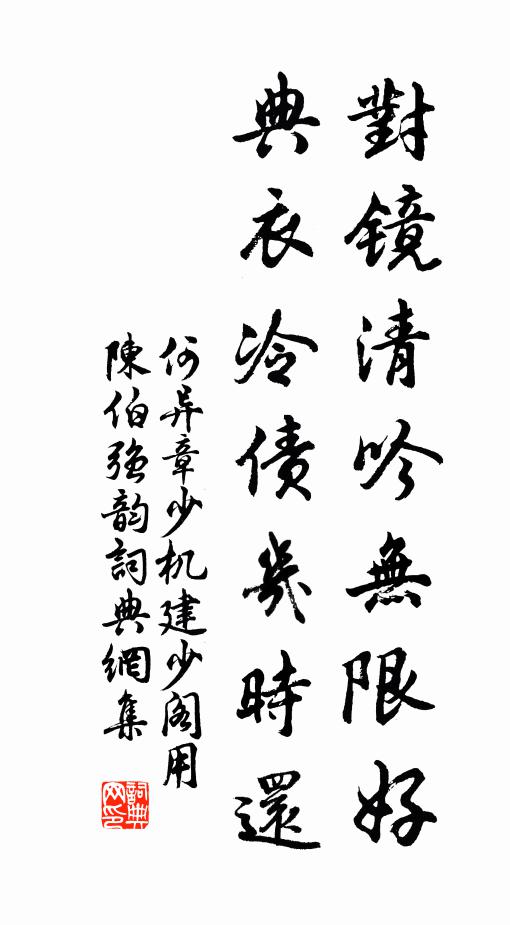 對镜清吟無限好
典衣冷债幾時還
何异章少机建少阁用
陳伯强韵詞典網集
詞典网印